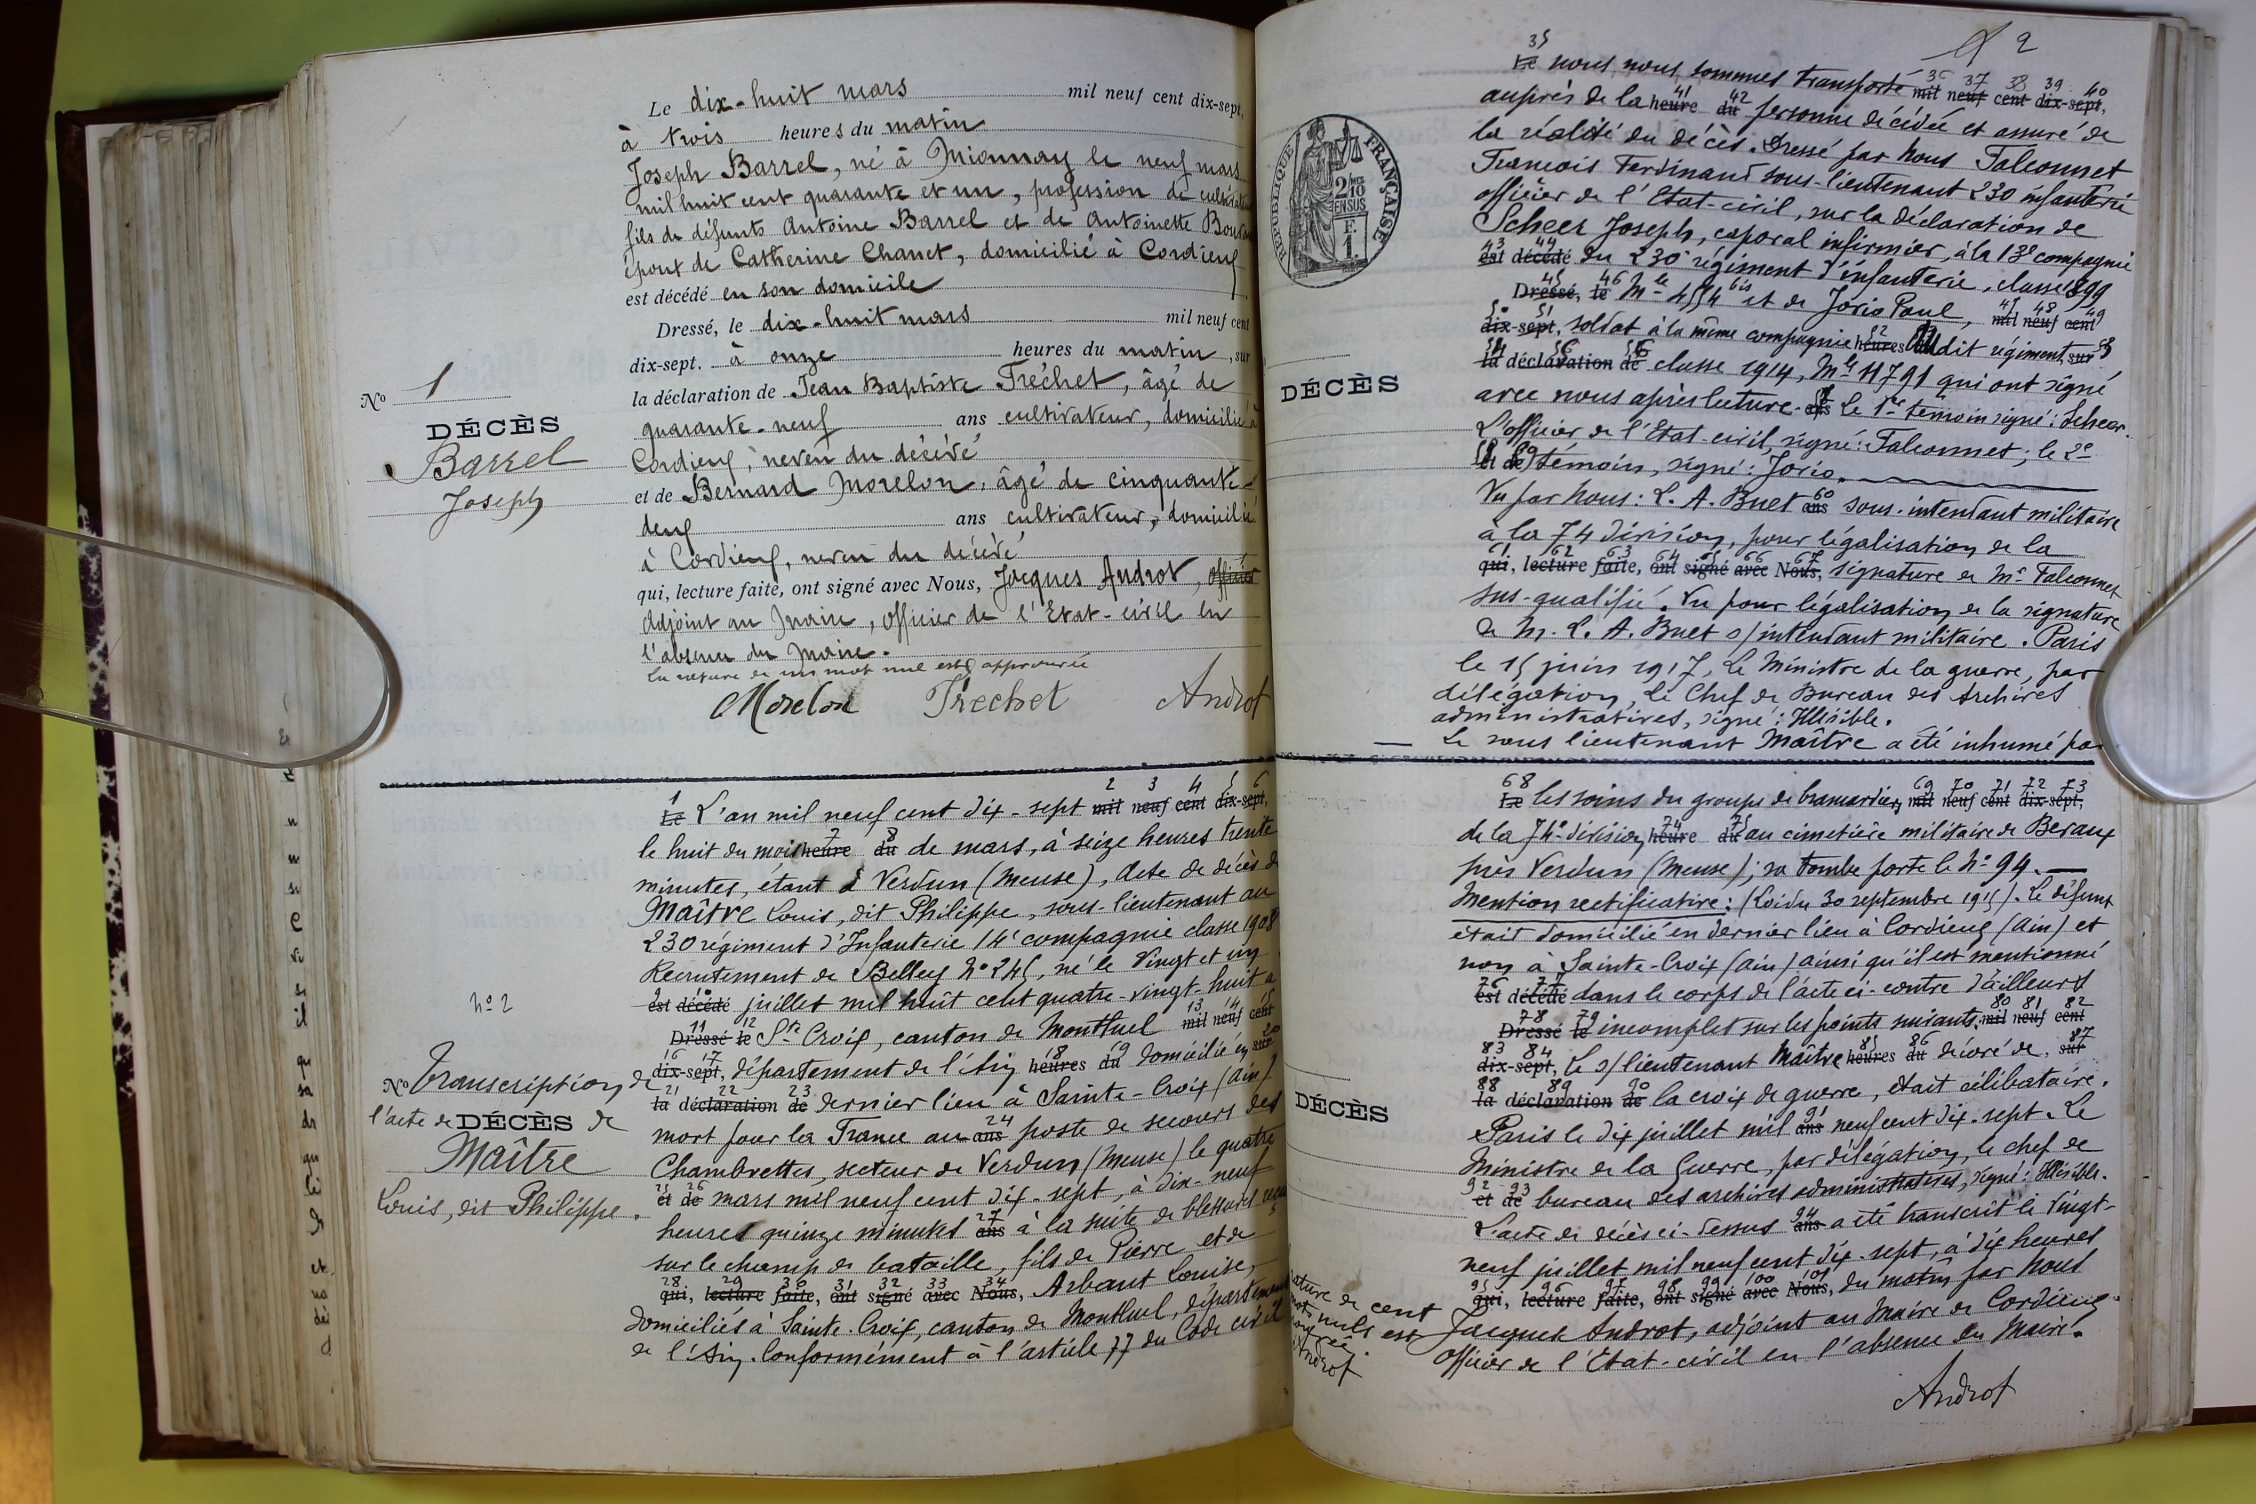 Le dix-huit mars mil neuf cent dix-sept,
à trois heures du matin
Joseph Barrel, né à Mionnay le neuf mars
mil huit cent quarante et un, profession de
fils de défunts Antoine Barrel et de Antoinette
époux de Catherine Chanet, domicilié à Cordieux
est décédé en son domicile
Dressé, le dix-huit mars mil neuf cent
dix-sept. à onze heures du matin, sur
la déclaration de Jean Baptiste Tréchet, âgé de
quarante-neuf ans cultivateur, domicilié à
Cordieux, neveu du décédé
et de Bernard Morelon, âgé de cinquante-
deux ans cultivateur, domicilié
à Cordieux, neveu du décédé
qui, lecture faite, ont signé avec Nous, Jacques Androt, officier
Adjoint au Maire, Officier de l'Etat-civil en
l'absence du Maire.
La rature de un mot nul est approuvée
Morelon Tréchet Androt
No 1
DÉCÈS
Barrel
Joseph
1 2 3 4 5 6
Le L'an mil neuf cent dix-sept mil neuf cent dix-sept,
7 8
le huit du mois heure du de mars, à seize heures trente
minutes, étant à Verdun (Meuse), Acte de décès de
Maître Louis, dit Philippe, sous-lieutenant au
230 régiment d'Infanterie 14e compagnie classe 1908
Recrutement de Belley No 245, né le Vingt et un
9 10
est décédé juillet mil huit cent quatre-vingt-huit à
11 12 13 14 15
Dressé le Ste Croix, canton de Montluel mil neuf cent
16 17 18 19 20
dix-sept, département de l'Ain heures du domicilié en sur
21 22 23
la déclaration de dernier lieu à Sainte-Croix (Ain)
24
mort pour la France au ans poste de secours des
Chambrettes, secteur de Verdun (Meuse) le quatre
25 26
et de mars mil neuf cent dix-sept, à dix-neuf
27
heures quinze minutes ans à la suite de blessures reçues
sur le champ de bataille, fils de Pierre et de
28 29 30 31 32 33 34
qui, lecture faite, ont signé avec Nous, Arbant Louise,
domiciliés à Sainte-Croix, canton de Montluel, département
de l'Ain. Conformément à l'article 77 du Code civil
No 2
No Transcription de
l'acte de DÉCÈS de
Maître
Louis, dit Philippe.
2
35 36 37 38 39 40
Le nous nous sommes transporté mil neuf cent dix-sept,
41 42
auprès de la heure du personne décédée et assuré de
la réalité du décès. Dressé par Nous Falconnet
François Ferdinand sous-lieutenant 230 infanterie
officier de l'Etat-civil, sur la déclaration de
Scheer Joseph, caporal infirmier, à la 13e compagnie
43 44
est décédé du 230e régiment d'infanterie, classe 1899
45 46 47 48 49
Dressé, le Mle 454 bis et de Jorio Paul, mil neuf cent
50 51 52 53
dix-sept, soldat à la même compagnie heures du dit régiment, sur
54 55 56
la déclaration de classe 1914, Mle 11791 qui ont signé
57
avec nous après lecture. ans Le 1er témoin signé: Scheer.
L'officier de l'Etat-civil, signé: Falconnet; le 2e
58 59
et de témoin, signé: Jorio.
60
Vu par Nous: L. A. Buet ans sous-intendant militaire
à la 74 division, pour légalisation de la
61 62 63 64 65 66 67
qui, lecture faite, ont signé avec Nous, signature de Mr Falconnet
sus-qualifié. Vu pour légalisation de la signature
de M. L. A. Buet s/intendant militaire. Paris
le 15 juin 1917, Le Ministre de la guerre, par
délégation, le Chef de Bureau des Archives
administratives, signé: Illisible.
Le sous lieutenant Maître a été inhumé par
RÉPUBLIQUE FRANÇAISE
2/10 EN SUS
DÉCÈS
68 69 70 71 72 73
Le les soins du groupe de brancardiers mil neuf cent dix-sept,
74 75
de la 74e division, heure du au cimetière militaire de Bevaux
près Verdun (Meuse); sa tombe porte le No 94.
Mention rectificative: (Loi du 30 septembre 1915). Le défunt
était domicilié en dernier lieu à Cordieux (Ain) et
non à Sainte-Croix (Ain) ainsi qu'il est mentionné
76 77
est décédé dans le corps de l'acte ci-contre d'ailleurs
78 79 80 81 82
Dressé le incomplet sur les points suivants: mil neuf cent
83 84 85 86 87
dix-sept, Le s/lieutenant Maître heures du décoré de, sur
88 89 90
la déclaration de la croix de guerre, était célibataire.
91
Paris le dix juillet mil ans neuf cent dix-sept. Le
Ministre de la Guerre, par délégation, le chef de
92 93
et de bureau des archives administratives, signé: Illisible.
94
L'acte de décès ci-dessus ans a été transcrit le Vingt-
neuf juillet mil neuf cent dix-sept, à dix heures
95 96 97 98 99 100 101
qui, lecture faite, ont signé avec Nous, du matin par Nous
Jacques Androt, adjoint au Maire de Cordieux
officier de l'Etat-civil en l'absence du Maire.
Androt
DÉCÈS
de cent
mots nuls est
Androt